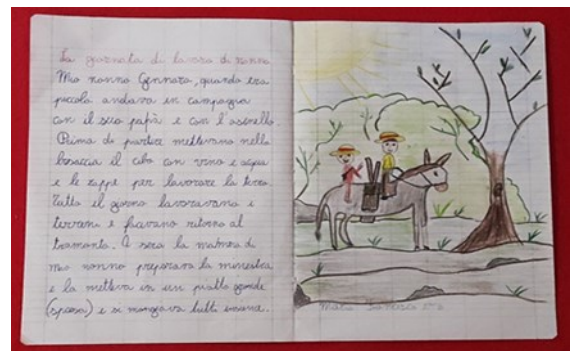 La giornata di lavoro di nonno
Mio nonno Gennaro, quando era
piccolo andava in campagna
con il suo papà e con l'asinello
Prima di partire mettevano nella
bisaccia il cibo con vino e acqua
e le zappe per lavorare la terra.
Tutto il giorno lavoravano i
terreni e facevano ritorno al
tramonto. A sera la mamma di
mio nonno preparava la minestra
e la metteva in un piatto grande
(spasa) e si mangiava tutti insieme.
Mattia